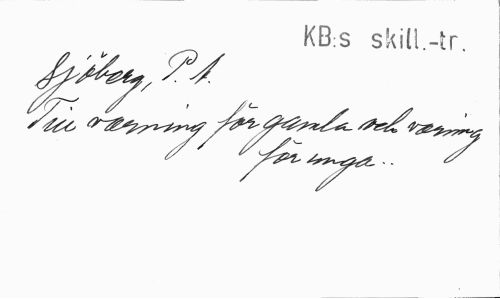 KB:s skill.-tr.
Sjöberg, P. A.
Till varning för gamla och varning
för unga..